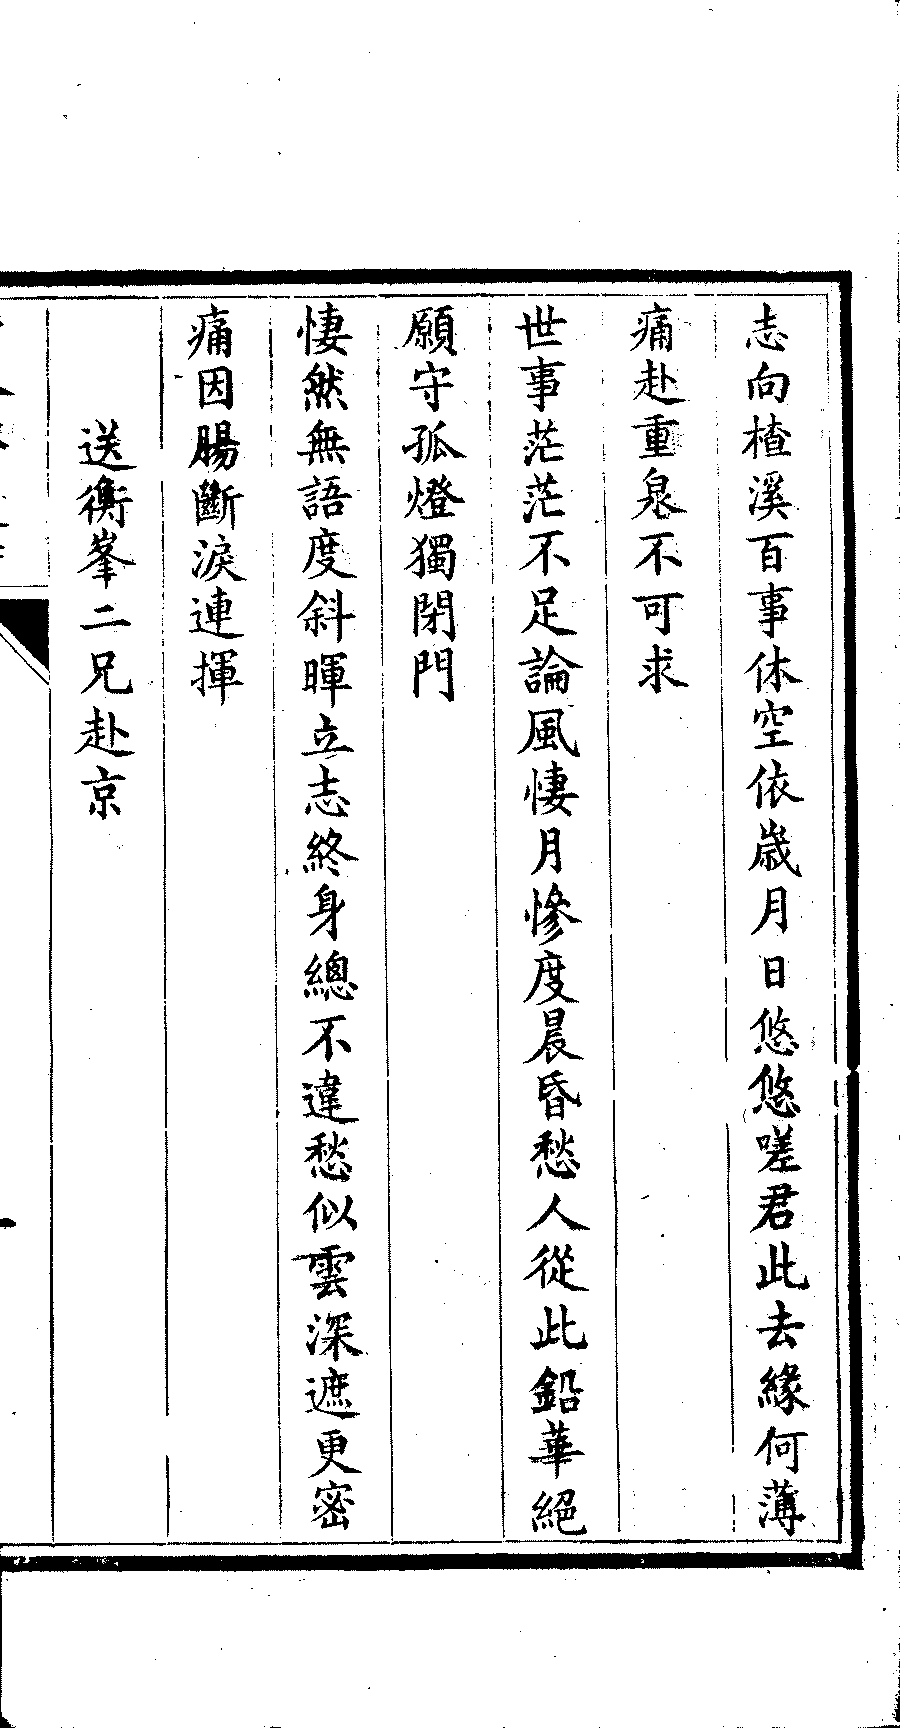 志向楂溪百事休空依歳月日悠悠嗟君此去緣何薄
痛赴重泉不可求
世事茫茫不足論風悽月慘度晨昏愁人從此鉛華絕
願守孤燈獨閉門
悽然無語度斜暉立志終身總不違愁似雲深遮更密
痛因腸斷淚連揮
送衡峯二兄赴京